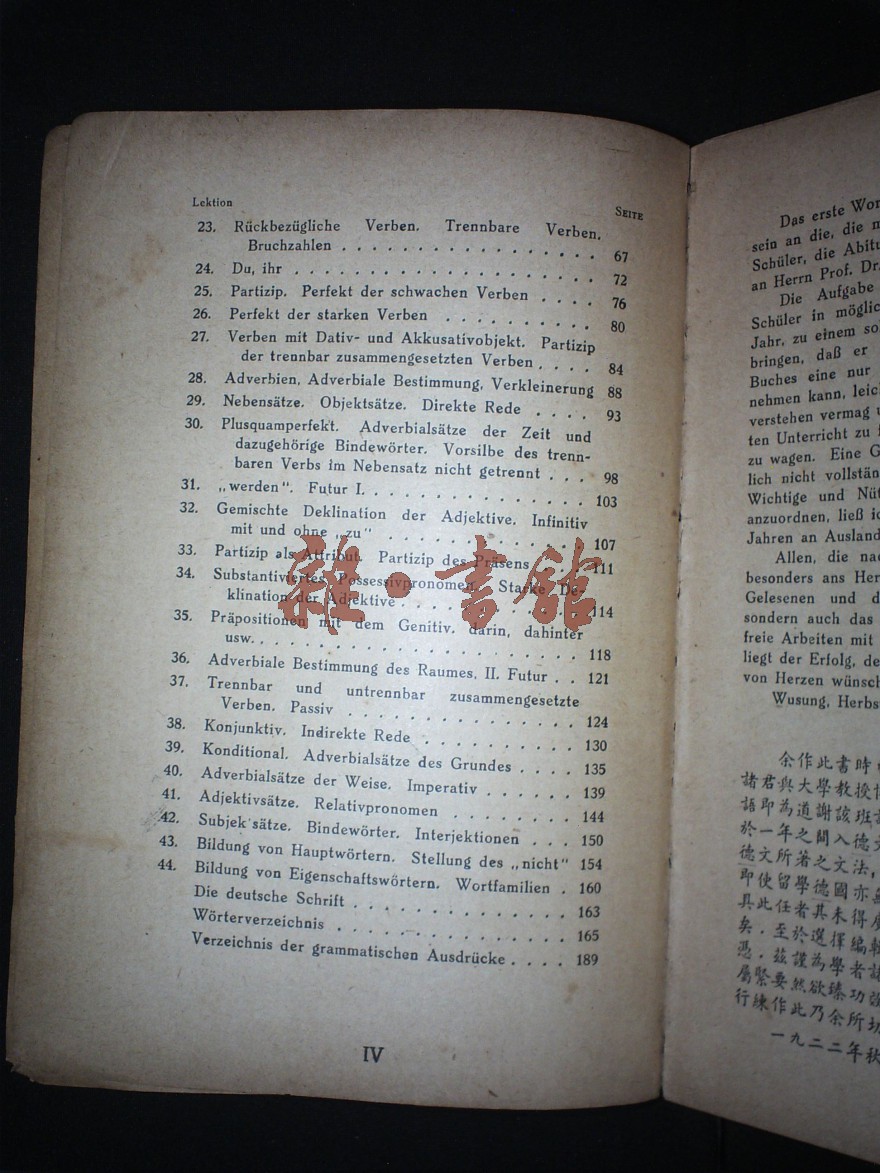 Lektion SEITE
23. Rückbezügliche Verben. Trennbare Verben.
Bruchzahlen . . . . . . . . . . . . . . . . 67
24. Du, ihr . . . . . . . . . . . . . . . . . . . 72
25. Partizip. Perfekt der schwachen Verben . . . . 76
26. Perfekt der starken Verben . . . . . . . . . . 80
27. Verben mit Dativ- und Akkusativobjekt. Partizip
der trennbar zusammengesetzten Verben . . . . 84
28. Adverbien, Adverbiale Bestimmung, Verkleinerung 88
29. Nebensätze. Objektsätze. Direkte Rede . . . . 93
30. Plusquamperfekt. Adverbialsätze der Zeit und
dazugehörige Bindewörter. Vorsilbe des trenn-
baren Verbs im Nebensatz nicht getrennt . . . 98
31. „werden". Futur I. . . . . . . . . . . . . . . 103
32. Gemischte Deklination der Adjektive. Infinitiv
mit und ohne „zu" . . . . . . . . . . . . . 107
33. Partizip als Attribut. Partizip des Präsens . . . 111
34. Substantiviertes Possessivpronomen. Starke De-
klination der Adjektive . . . . . . . . . . . 114
35. Präpositionen mit dem Genitiv. darin, dahinter
usw. . . . . . . . . . . . . . . . . . . . . 118
36. Adverbiale Bestimmung des Raumes, II. Futur . . 121
37. Trennbar und untrennbar zusammengesetzte
Verben. Passiv . . . . . . . . . . . . . . . 124
38. Konjunktiv. Indirekte Rede . . . . . . . . . . 130
39. Konditional. Adverbialsätze des Grundes . . . . 135
40. Adverbialsätze der Weise. Imperativ . . . . . . 139
41. Adjektivsätze. Relativpronomen . . . . . . . . 144
42. Subjek'sätze. Bindewörter. Interjektionen . . . 150
43. Bildung von Hauptwörtern. Stellung des „nicht" 154
44. Bildung von Eigenschaftswörtern. Wortfamilien . 160
Die deutsche Schrift . . . . . . . . . . . . . 163
Wörterverzeichnis . . . . . . . . . . . . . . 165
Verzeichnis der grammatischen Ausdrücke . . . . 189
IV
雜·書館
Das erste Wor
sein an die, die m
Schüler, die Abitu
an Herrn Prof. Dr.
Die Aufgabe
Schüler in möglic
Jahr, zu einem so
bringen, daß er
Buches eine nur
nehmen kann, leic
verstehen vermag u
ten Unterricht zu f
zu wagen. Eine G
lich nicht vollstän
Wichtige und Nüt
anzuordnen, ließ ic
Jahren an Ausland
Allen, die nac
besonders ans Her
Gelesenen und d
sondern auch das
freie Arbeiten mit
liegt der Erfolg, de
von Herzen wünsch
Wusung, Herbs
余作此書時
諸君與大學教授
語即為道謝該班
於一年之間入德文
德文所著之文法,
即使留學德國亦
具此任者其未得
矣.至於選擇編輯
憑.茲謹為學者諸
屬緊要然欲臻功
行練作此乃余所切
一九二二年秋